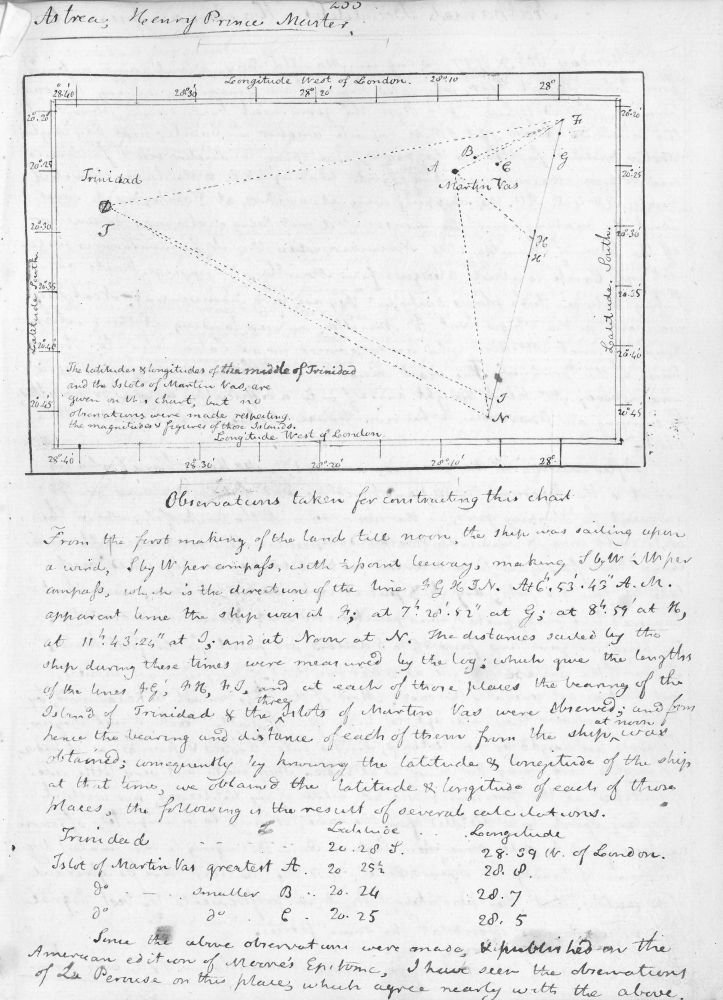 233
Astrea, Henry Prince Master.
Longitude West of London.
28°.40 28°.30 28°.20 28°.10 28°
20°.20 F 20°.20
B G
20°.25 A C 20.25
Trinidad Martin Vas
T
20°.30 H 20°.30
H'
Latitude South. Latitude South.
20°.35 20.35
20°.40 20°.40
The latitudes & longitudes of the middle of Trinidad
and the Islots of Martin Vas, are
given on this chart, but no
20°.45 I 20°.45
observations were made respecting N
the magnitudes & figures of those Islands.
Longitude West of London.
28°.40 28°.30 28°.20 28°.10 28°
Observations taken for constructing this chart
From the first making of the land till noon, the ship was sailing upon
a wind, S by W per compass, with ½ point leeway, making S by W ½ W per
compass, which is the direction of the line F G H I N. At 6h. 53'. 43" A.M.
apparent time the ship was at F; at 7h. 28'. 52" at G; at 8h. 59' at H,
at 11h. 43'. 24" at I; and at Noon at N. The distances sailed by the
ship during these times were measured by the log; which give the lengths
of the lines FG, FH, FI, and at each of those places the bearing of the
Island of Trinidad & the three Islots of Martin Vas were observed; and from
hence the bearing and distance of each of them from the ship at noon was
obtained; consequently by knowing the latitude & longitude of the ship
at that time, we obtained the latitude & longitude of each of those
places, the following is the result of several calculations.
Latitude Longitude
Trinidad 20.28 S. 28.39 W. of London.
Islot of Martin Vas greatest A. 20.25½ 28.8.
do smaller B 20.24 28.7
do do C 20.25 28.5
Since the above observations were made, & published on the
American edition of Moore's Epitome, I have seen the observations
of La Perouse on this place, which agree nearly with the above.